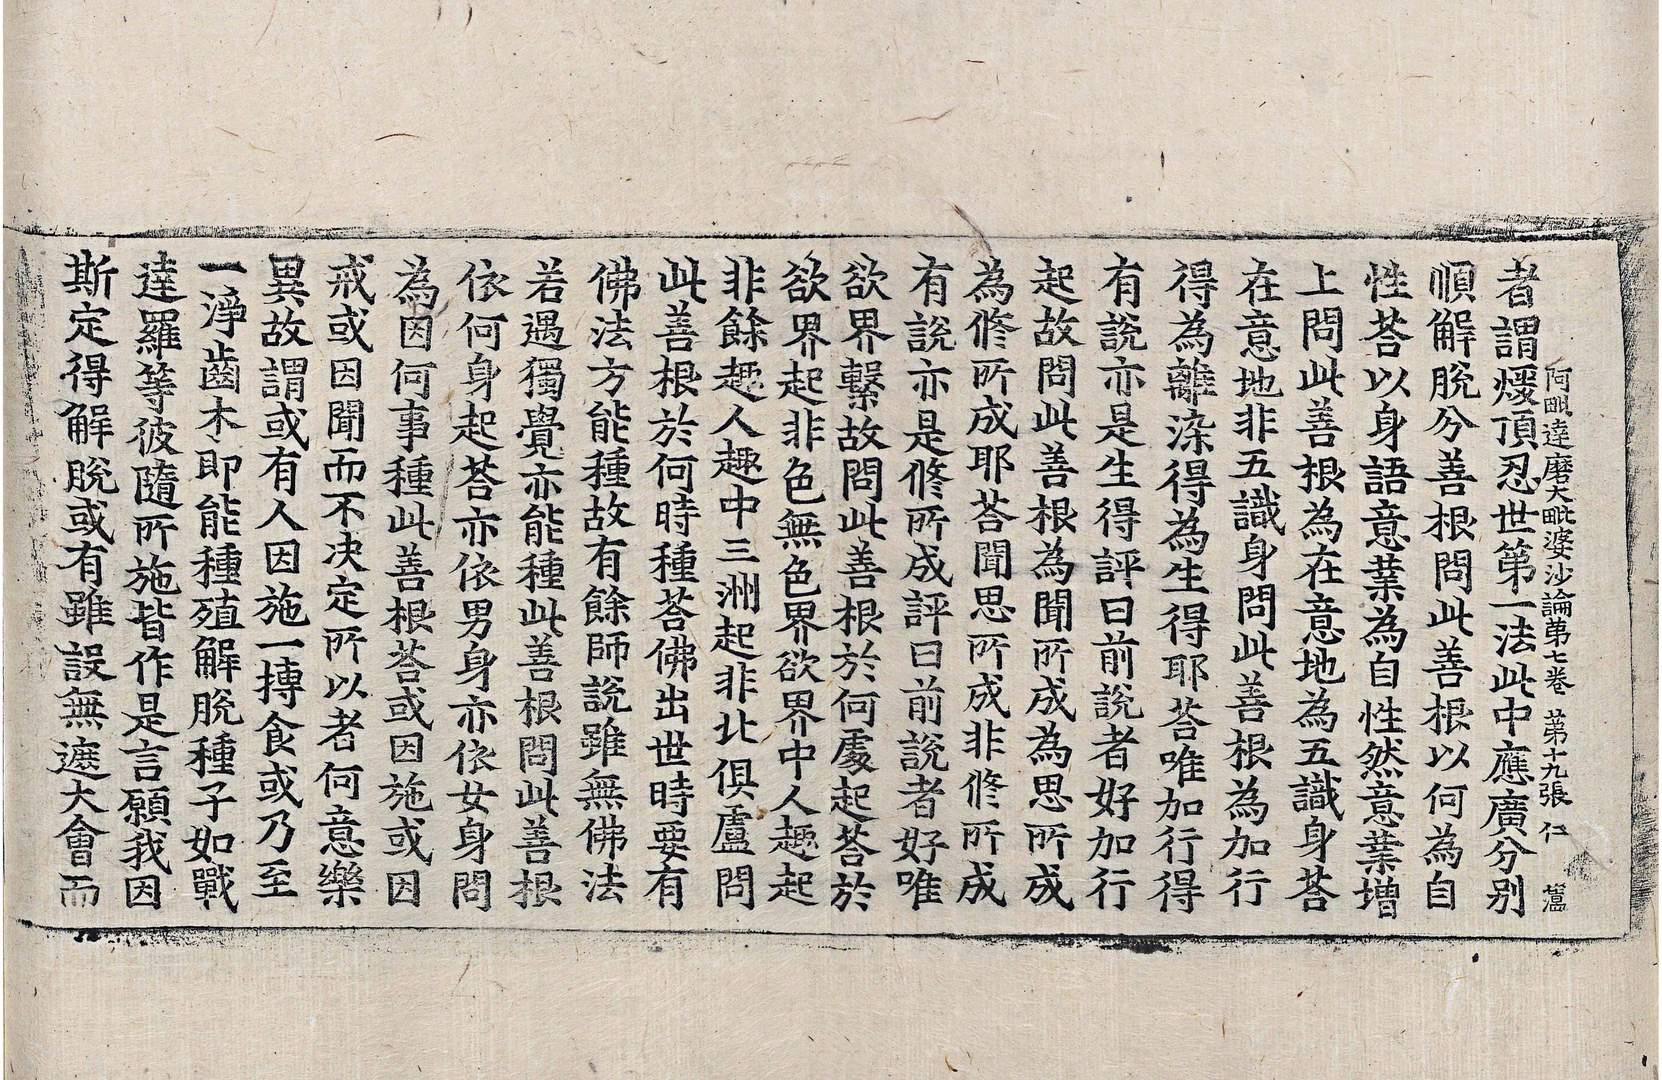 阿毗達磨大毗婆沙論第七卷 第十九張 仁
者謂煗頂忍世第一法此中應廣分別
順解脫分善根問此善根以何為自
性荅以身語意業為自性然意業增
上問此善根為在意地為五識身荅
在意地非五識身問此善根為加行
得為離染得為生得耶荅唯加行得
有說亦是生得評曰前說者好加行
起故問此善根為聞所成為思所成
為修所成耶荅聞思所成非修所成
有說亦是修所成評曰前說者好唯
欲界繫故問此善根於何處起荅於
欲界起非色無色界欲界中人趣起
非餘趣人趣中三洲起非北俱盧問
此善根於何時種荅佛出世時要有
佛法方能種故有餘師說雖無佛法
若遇獨覺亦能種此善根問此善根
依何身起荅亦依男身亦依女身問
為因何事種此善根荅或因施或因
戒或因聞而不決定所以者何意樂
異故謂或有人因施一摶食或乃至
一淨齒木即能種殖解脫種子如戰
達羅等彼隨所施皆作是言願我因
斯定得解脫或有雖設無遮大會而